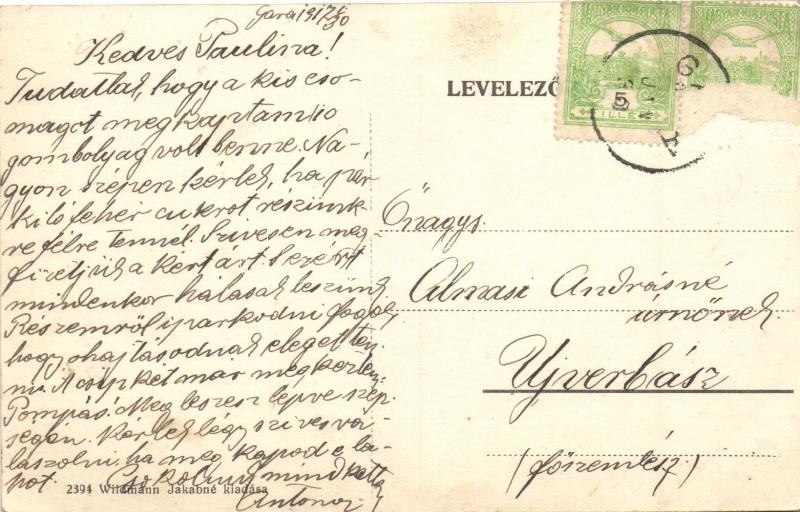 Gara 1917
Kedves Paulina!
Tudatlak, hogy a kis cso-
magot megkaptam 10
gombolyag volt benne. Na-
gyon szépen kérlek, ha pár
kiló fehér cukrot részünk-
re félre tennél. Szivesen meg-
fizetjük a kért árt. Ezért
mindenkor hálásak leszünk
Részemről iparkodni fogok,
hogy ohajtásodnak eleget ten-
ni. A csipkét már megkeztem
Pompás! Meg leszel lepve szép-
ségén. Kérlek légy szives vá-
laszolni, ha meg kapod e la-
pot. Csókolunk mindketten
Antonia
2394 Wildmann Jakabné kiadása
LEVELEZŐ
5
FILLÉR
Önagys.
Almási Andrásné
úrnőnek
Ujverbász
(főszemlész)